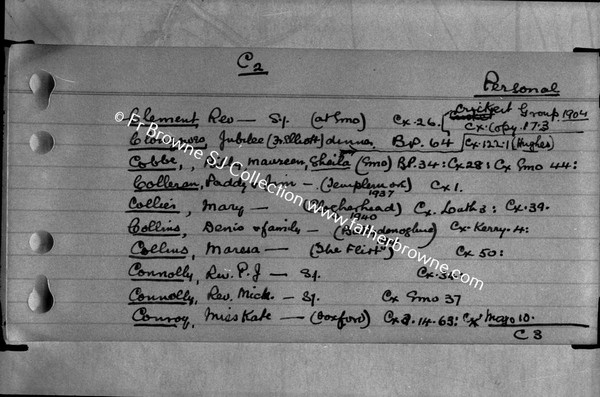 C2
Personal
Clement Rev — S.J. (at Emo) Cx.26. Cricket Group. 1904
Cx. Copy. 173
Clongowes, Jubilee (Fr Elliott) dinner B.P. 64 Cx.122.1 (Hughes)
Cobbe, Maureen, Sheila (Emo) B.P.34: Cx28: Cx Emo 44:
Colleran, Paddy — (Templemore) Cx1.
1937
Collier, Mary — Cx. Louth 3: Cx.39.
1940
Collins, Denis & family — Cx. Kerry. 4:
Collins, Maresa — (The Flist) Cx 50:
Connolly, Rev. P. J — S.J.
Connolly, Rev. Mick. — S.J. Cx Emo 37
Conroy, Miss Kate — (Oxford) Cx 2.14.63: Cx Mayo 10.
C 3
© Fr Browne SJ Collection www.fatherbrowne.com